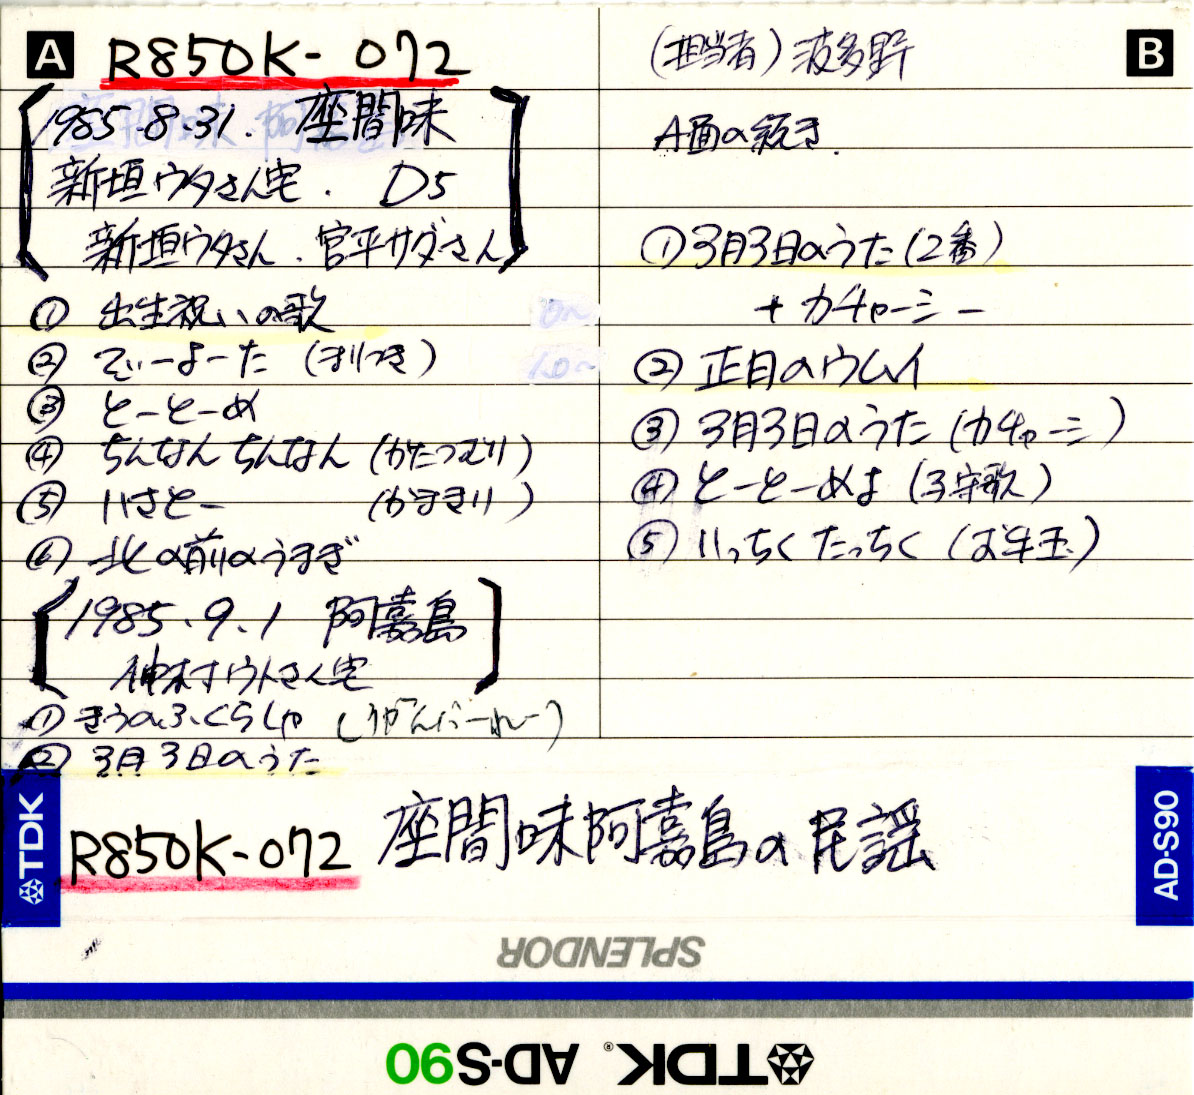 A R850K-072
1985.8.31. 座間味
新垣ウタさん宅. D5
新垣ウタさん. 宮平サダさん
① 出生祝いの歌
② てぃーよーた (まりつき)
③ とーとーめ
④ ちんなん ちんなん (かたつむり)
⑤ いさとー (かまきり)
⑥ 北の前のうまぎ
1985.9.1 阿嘉島
仲村ウトさん宅
① きうのふくらしゃ
② 3月3日のうた
B
(担当者) 波多野
A面の続き.
① 3月3日のうた (2番)
+ カチャーシー
② 正月のウムイ
③ 3月3日のうた (カチャーシ)
④ とーとーめよ (子守歌)
⑤ いっちく たっちく (お年玉)
TDK
R850K-072 座間味阿嘉島の民謡
AD-S90
SPLENDOR
TDK® AD-S90